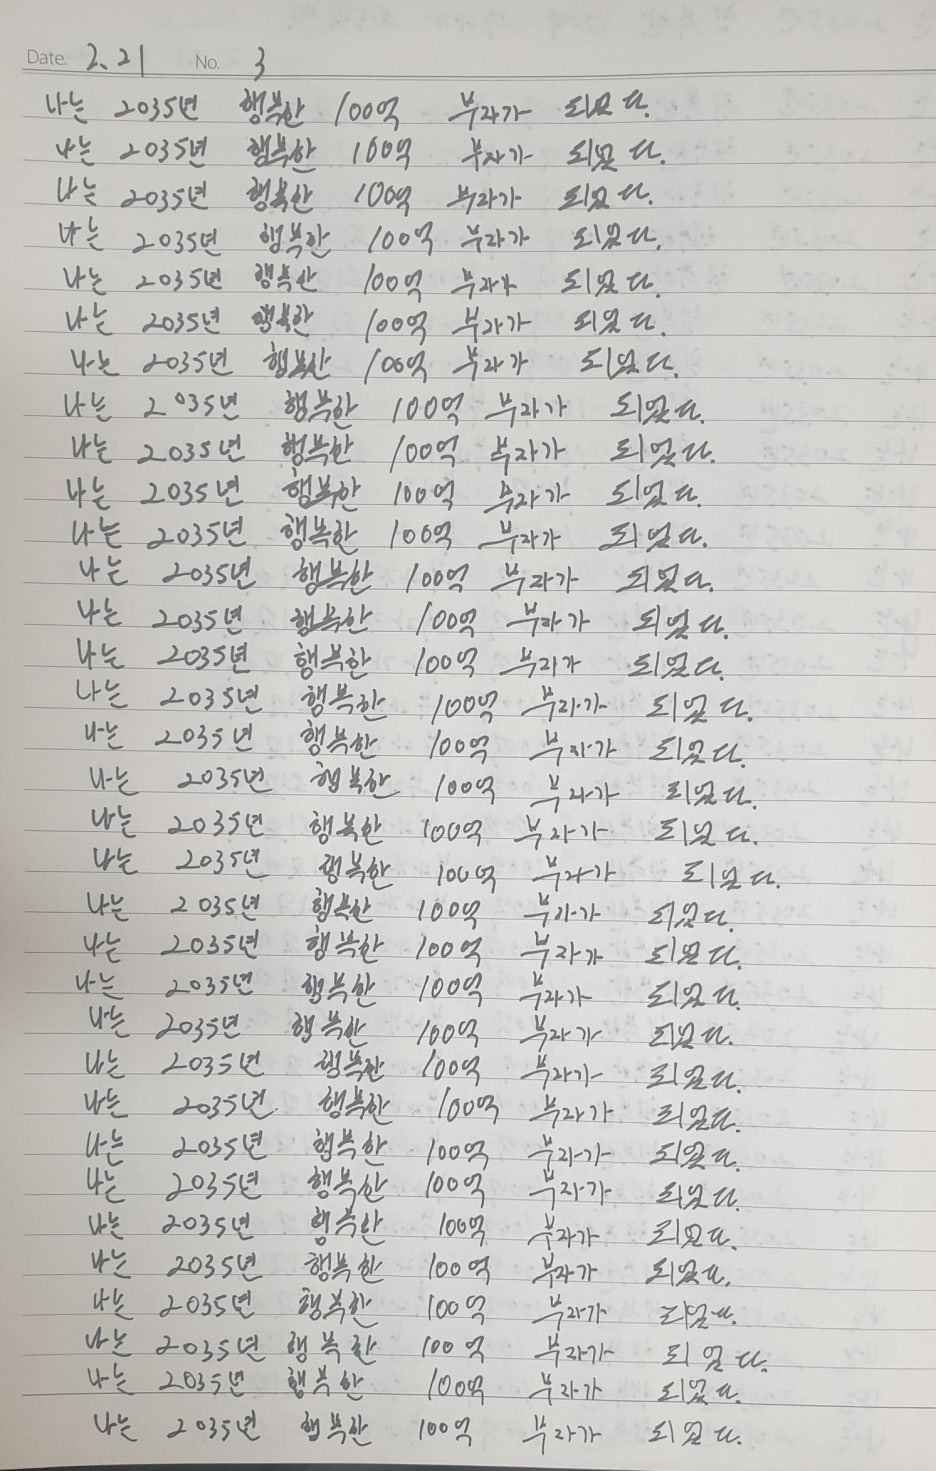 Date. 2. 21 No. 3
나는 2035년 행복한 100억 부자가 되었다.
나는 2035년 행복한 100억 부자가 되었다.
나는 2035년 행복한 100억 부자가 되었다.
나는 2035년 행복한 100억 부자가 되었다.
나는 2035년 행복한 100억 부자가 되었다.
나는 2035년 행복한 100억 부자가 되었다.
나는 2035년 행복한 100억 부자가 되었다.
나는 2035년 행복한 100억 부자가 되었다.
나는 2035년 행복한 100억 부자가 되었다.
나는 2035년 행복한 100억 부자가 되었다.
나는 2035년 행복한 100억 부자가 되었다.
나는 2035년 행복한 100억 부자가 되었다.
나는 2035년 행복한 100억 부자가 되었다.
나는 2035년 행복한 100억 부자가 되었다.
나는 2035년 행복한 100억 부자가 되었다.
나는 2035년 행복한 100억 부자가 되었다.
나는 2035년 행복한 100억 부자가 되었다.
나는 2035년 행복한 100억 부자가 되었다.
나는 2035년 행복한 100억 부자가 되었다.
나는 2035년 행복한 100억 부자가 되었다.
나는 2035년 행복한 100억 부자가 되었다.
나는 2035년 행복한 100억 부자가 되었다.
나는 2035년 행복한 100억 부자가 되었다.
나는 2035년 행복한 100억 부자가 되었다.
나는 2035년 행복한 100억 부자가 되었다.
나는 2035년 행복한 100억 부자가 되었다.
나는 2035년 행복한 100억 부자가 되었다.
나는 2035년 행복한 100억 부자가 되었다.
나는 2035년 행복한 100억 부자가 되었다.
나는 2035년 행복한 100억 부자가 되었다.
나는 2035년 행복한 100억 부자가 되었다.
나는 2035년 행복한 100억 부자가 되었다.
나는 2035년 행복한 100억 부자가 되었다.